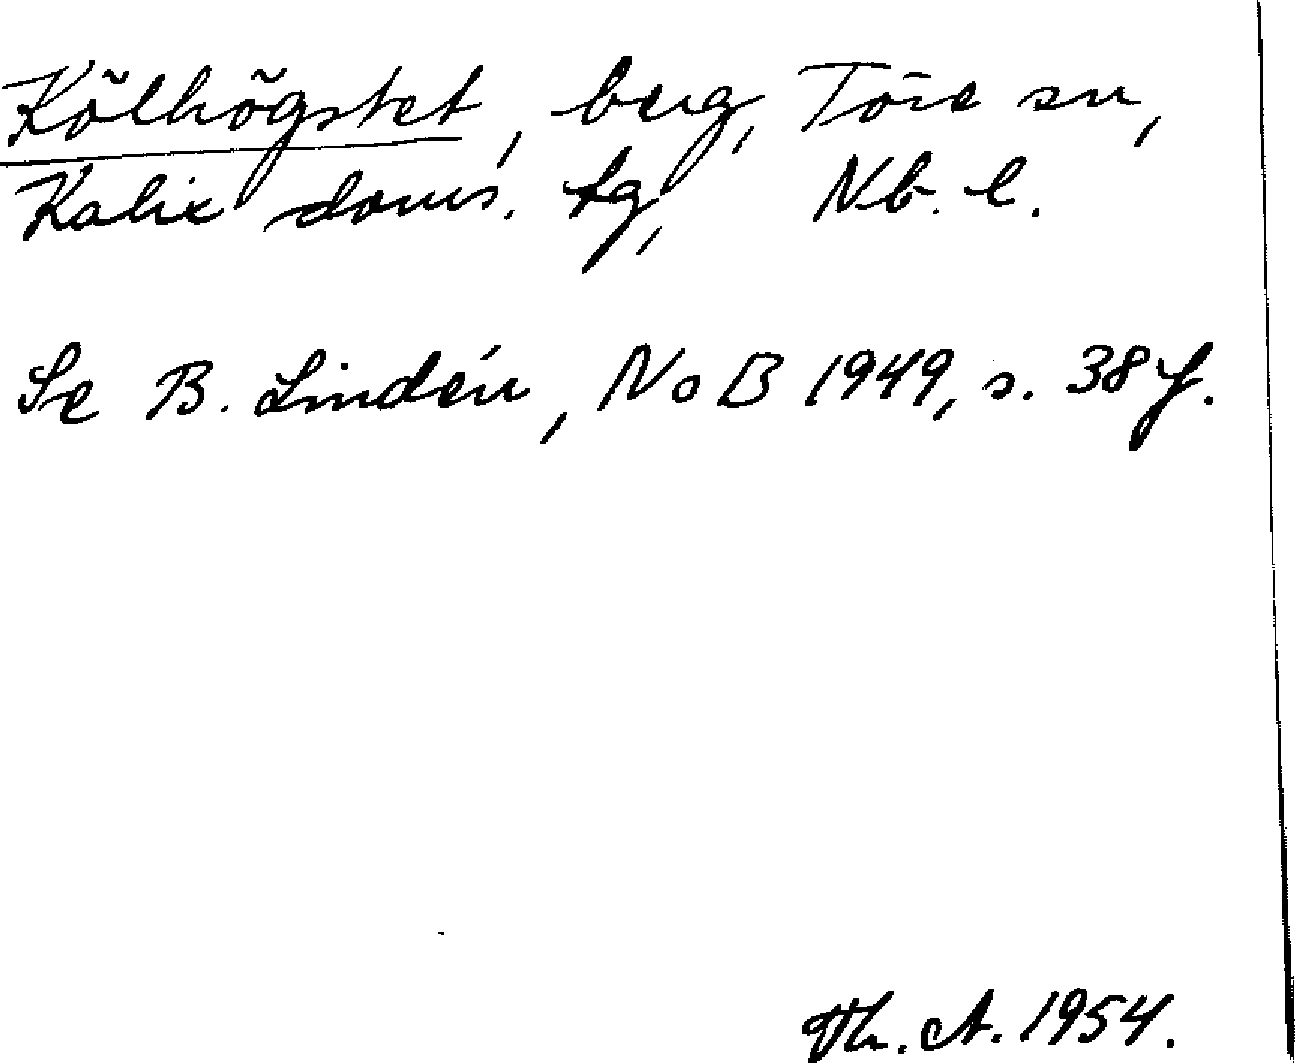 Kölhögstet, berg, Töre sn,
Kalix doms. tg, Nb. l.
Se B. Lindén, NoB 1949, s. 38 f.
Th. A. 1954.